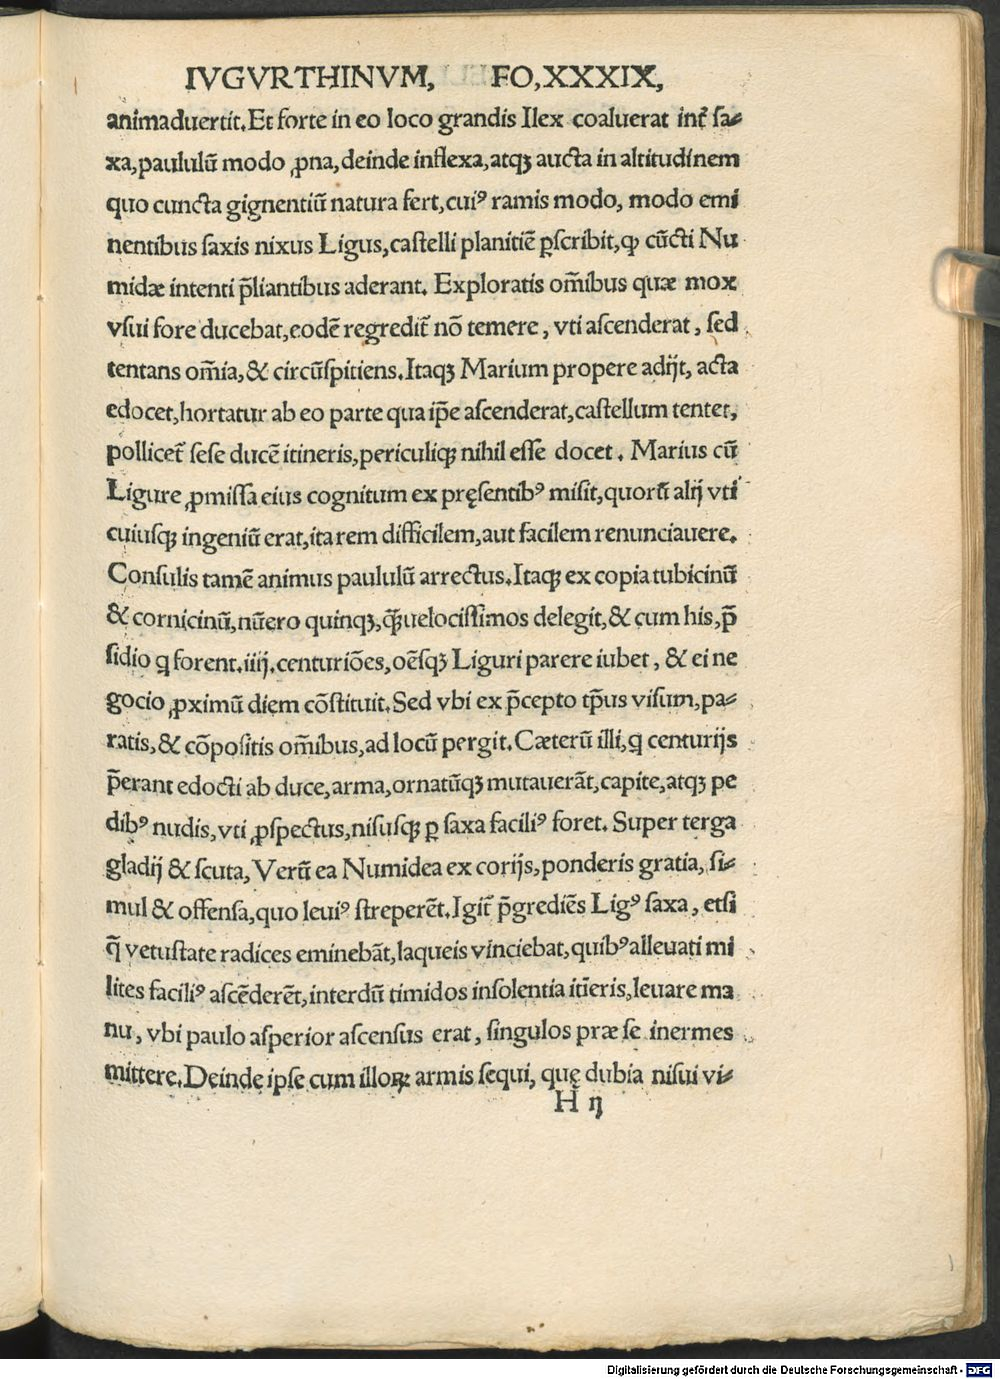 IVGVRTHINVM, FO,XXXIX,
animaduertit.Et forte in eo loco grandis Ilex coaluerat int̃ sa⸗
xa,paululũ modo ꝓna,deinde inflexa,atqꝫ aucta in altitudinem
quo cuncta gignentiũ natura fert,cuiꝰ ramis modo, modo emi
nentibus saxis nixus Ligus,castelli planitiẽ ꝑscribit,ꝙ cũcti Nu
midæ intenti p̃liantibus aderant. Exploratis om̃ibus quæ mox
vsui fore ducebat,eodẽ regredit̃ nõ temere, vti ascenderat, sed
tentans om̃ia,& circũspitiens.Itaqꝫ Marium propere adijt, acta
edocet,hortatur ab eo parte qua ip̃e ascenderat,castellum tentet,
pollicet̃ sese ducẽ itineris,periculiqꝫ nihil esse docet. Marius cũ
Ligure ꝓmissa eius cognitum ex pręsentibꝰ misit,quorũ alij vti
cuiusqꝫ ingeniũ erat,ita rem difficilem,aut facilem renunciauere.
Consulis tamẽ animus paululũ arrectus.Itaqꝫ ex copia tubicinũ
& cornicinũ,nũero quinqꝫ,q̃ꝫuelocissimos delegit,& cum his,p̃
sidio q forent.iiij.centuriões,oẽsqꝫ Liguri parere iubet, & ei ne
gocio ꝓximũ diem cõstituit.Sed vbi ex p̃cepto tp̃us visum,pa⸗
ratis,& cõpositis om̃ibus,ad locũ pergit.Cæterũ illi,q centurijs
p̃erant edocti ab duce,arma,ornatũqꝫ mutauerãt,capite,atqꝫ pe
dibꝰ nudis,vti ꝓspectus,nisusqꝫ ꝑ saxa faciliꝰ foret. Super terga
gladij & scuta, Verũ ea Numidea ex corijs,ponderis gratia, si⸗
mul & offensa,quo leuiꝰ streperẽt.Igit̃ p̃grediẽs Ligꝰ saxa, etsi
q̃ vetustate radices eminebãt,laqueis vinciebat,quibꝰ alleuati mi
lites faciliꝰ ascẽderẽt,interdũ timidos insolentia itĩeris,leuare ma
nu, vbi paulo asperior ascensus erat, singulos præ se inermes
mittere.Deinde ipse cum illoꝝ armis sequi, quę dubia nisui vi⸗
H ij
Digitalisierung gefördert durch die Deutsche Forschungsgemeinschaft - DFG